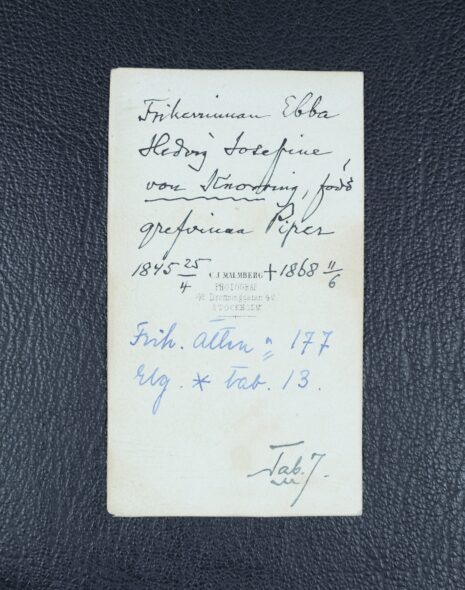 Friherrinnan Ebba
Hedvig Josefine
von Knorring, född
grefvinna Piper
1845 25/4 † 1868 11/6
C.J. MALMBERG
PHOTOGRAF
42 Drottninggatan 42
STOCKHOLM
Frih. ätten n: 177
Elg. * tab. 13.
Tab. 7.